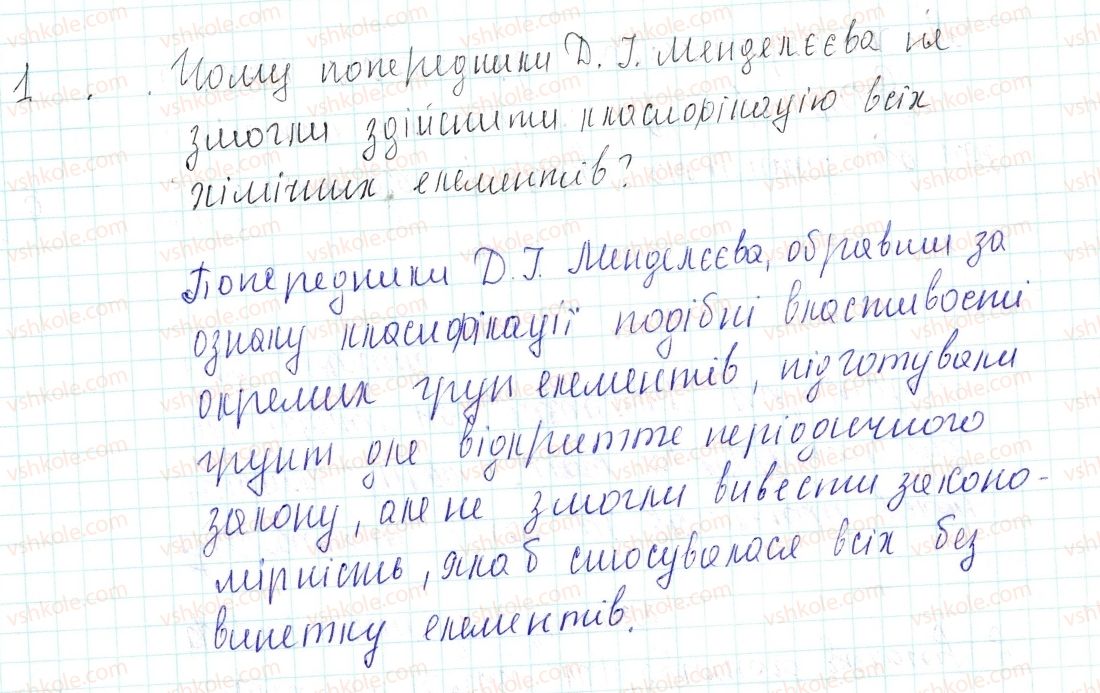 1. Чому попередники Д. І. Менделєєва не
змогли здійснити класифікацію всіх
хімічних елементів?
Попередники Д. І. Менделєєва, обравши за
ознаку класифікації подібні властивості
окремих груп елементів, підготували
грунт для відкриття періодичного
закону, але не змогли вивести законо-
мірність, яка б стосувалася всіх без
винетку елементів.
vshkole.com